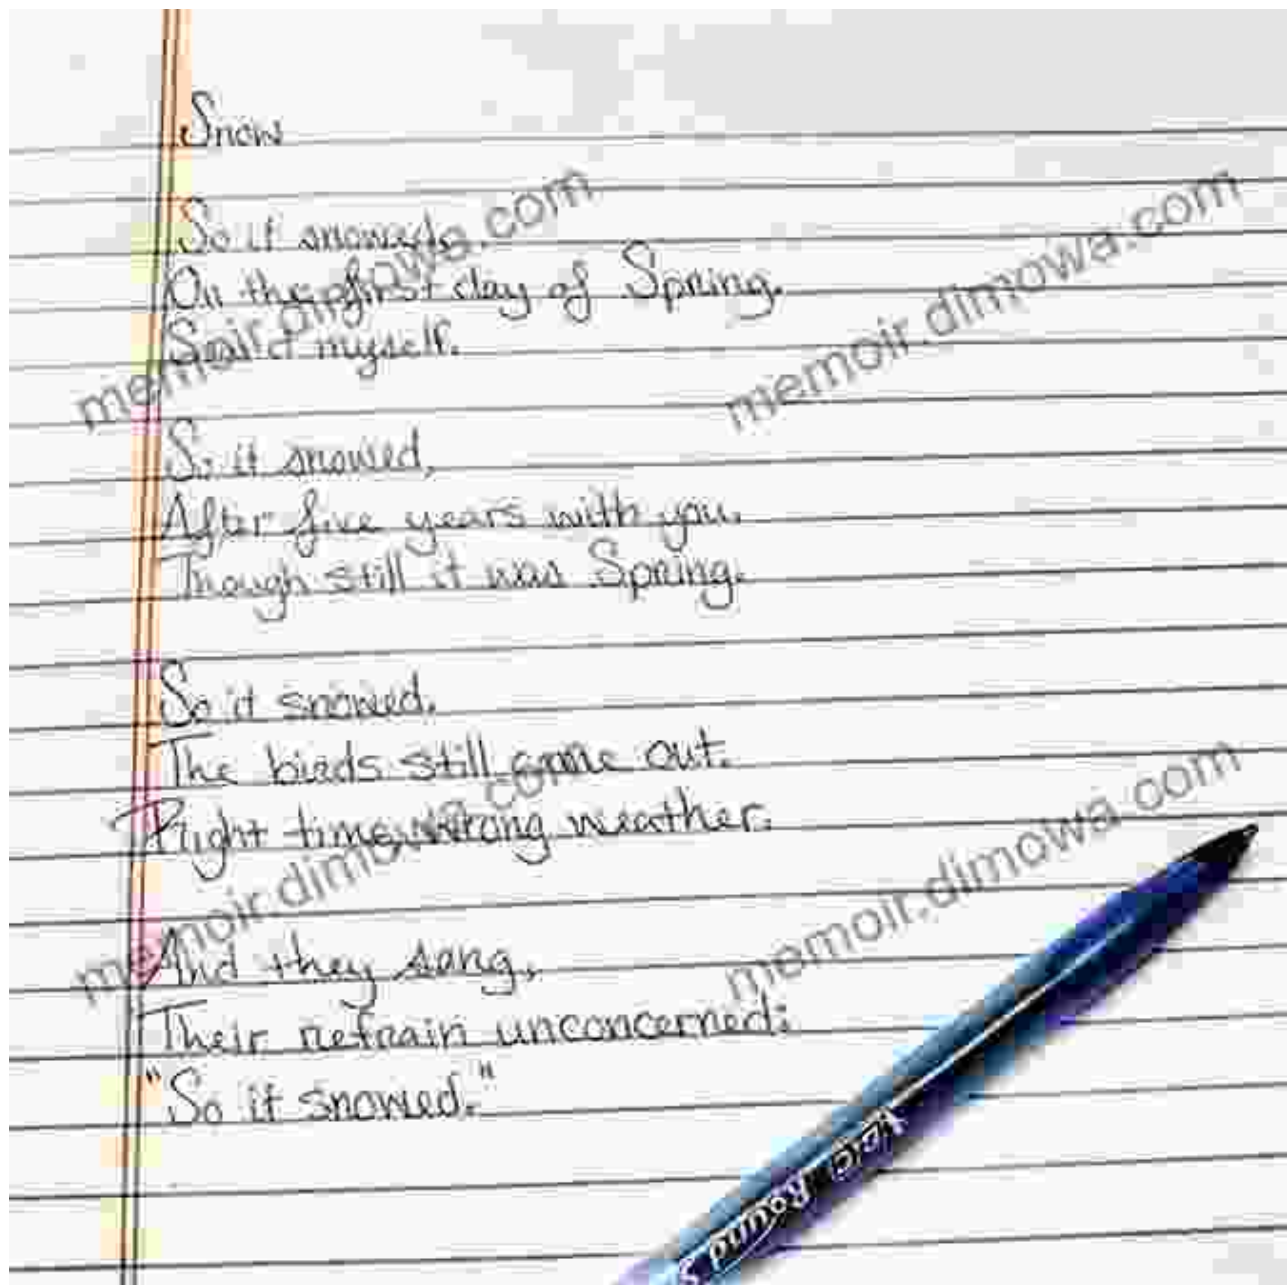 Snow
So it snowed,
On the first day of Spring.
Said I myself.
So it snowed,
After five years with you.
Though still it was Spring.
So it snowed.
The birds still came out.
Right time, wrong weather.
And they sang,
Their refrain unconcerned:
"So it snowed."
memoir.dimowa.com
memoir.dimowa.com
memoir.dimowa.com
memoir.dimowa.com
Round S